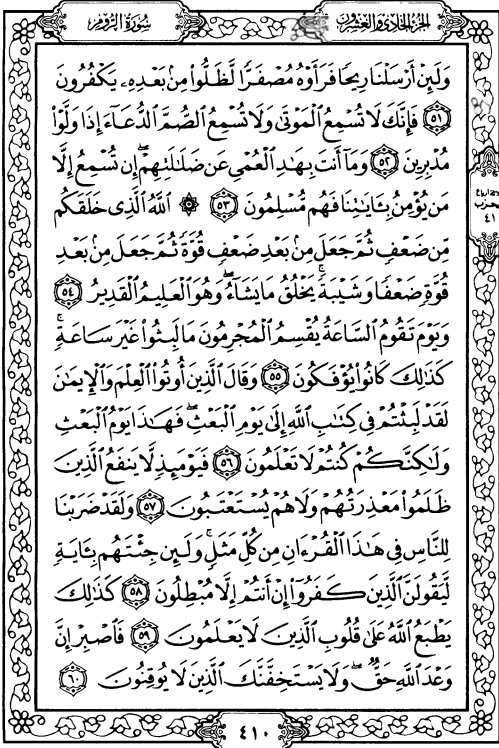 الجزء الحادي والعشرون
سورة الروم
وَلَئِنْ أَرْسَلْنَا رِيحًا فَرَأَوْهُ مُصْفَرًّا لَّظَلُّوا۟ مِنۢ بَعْدِهِۦ يَكْفُرُونَ
٥١ فَإِنَّكَ لَا تُسْمِعُ ٱلْمَوْتَىٰ وَلَا تُسْمِعُ ٱلصُّمَّ ٱلدُّعَآءَ إِذَا وَلَّوْا۟
مُدْبِرِينَ ٥٢ وَمَآ أَنتَ بِهَـٰدِ ٱلْعُمْىِ عَن ضَلَـٰلَتِهِمْ ۖ إِن تُسْمِعُ إِلَّا
مَن يُؤْمِنُ بِـَٔايَـٰتِنَا فَهُم مُّسْلِمُونَ ٥٣ ۞ ٱللَّهُ ٱلَّذِى خَلَقَكُم
مِّن ضَعْفٍ ثُمَّ جَعَلَ مِنۢ بَعْدِ ضَعْفٍ قُوَّةً ثُمَّ جَعَلَ مِنۢ بَعْدِ
قُوَّةٍ ضَعْفًا وَشَيْبَةً ۚ يَخْلُقُ مَا يَشَآءُ ۖ وَهُوَ ٱلْعَلِيمُ ٱلْقَدِيرُ ٥٤
وَيَوْمَ تَقُومُ ٱلسَّاعَةُ يُقْسِمُ ٱلْمُجْرِمُونَ مَا لَبِثُوا۟ غَيْرَ سَاعَةٍ ۚ
كَذَٰلِكَ كَانُوا۟ يُؤْفَكُونَ ٥٥ وَقَالَ ٱلَّذِينَ أُوتُوا۟ ٱلْعِلْمَ وَٱلْإِيمَـٰنَ
لَقَدْ لَبِثْتُمْ فِى كِتَـٰبِ ٱللَّهِ إِلَىٰ يَوْمِ ٱلْبَعْثِ ۖ فَهَـٰذَا يَوْمُ ٱلْبَعْثِ
وَلَـٰكِنَّكُمْ كُنتُمْ لَا تَعْلَمُونَ ٥٦ فَيَوْمَئِذٍ لَّا يَنفَعُ ٱلَّذِينَ
ظَلَمُوا۟ مَعْذِرَتُهُمْ وَلَا هُمْ يُسْتَعْتَبُونَ ٥٧ وَلَقَدْ ضَرَبْنَا
لِلنَّاسِ فِى هَـٰذَا ٱلْقُرْءَانِ مِن كُلِّ مَثَلٍ ۚ وَلَئِن جِئْتَهُم بِـَٔايَةٍ
لَّيَقُولَنَّ ٱلَّذِينَ كَفَرُوٓا۟ إِنْ أَنتُمْ إِلَّا مُبْطِلُونَ ٥٨ كَذَٰلِكَ
يَطْبَعُ ٱللَّهُ عَلَىٰ قُلُوبِ ٱلَّذِينَ لَا يَعْلَمُونَ ٥٩ فَٱصْبِرْ إِنَّ
وَعْدَ ٱللَّهِ حَقٌّ ۖ وَلَا يَسْتَخِفَّنَّكَ ٱلَّذِينَ لَا يُوقِنُونَ ٦٠
الحزب
٤١
٤١٠